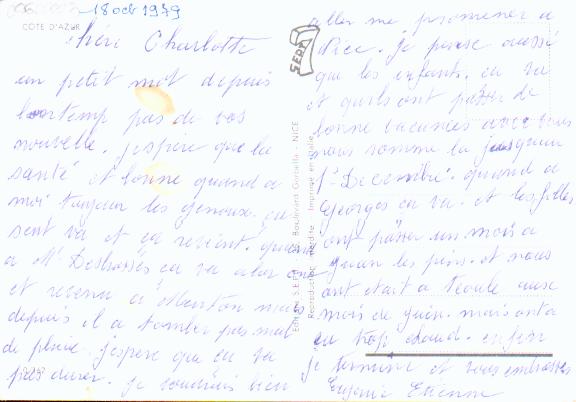 18 oct 1979
COTE D'AZUR
chéri Charlotte
un petit mot depuis
lontemp pas de vos
nouvelle. j'espère que la
santé et bonne quand a
moi toujour les genoux. ça
sent va et ça revient. quand
a Mr ça va alor on
et revenu a Menton mais
depuis il a tomber pas mal
de pluie. j'espere que ça va
pas durer. je voudrais bien
aller me promener a
Nice. je pense aussi
que les enfants. ça va
et qu'ils ont passer de
bonne vacances avec vous
nous somme la jusquau
1er Decembre. quand a
Georges ça va. et les filles
ont passer un mois a
juan les pins. et nous
ont etait a Teoule aux
mois de juin. mais ont a
eu trop chaud. enfin
je termine et vous embrasses
Eugenie Etienne
SEPT
Editions S.E.P.T. Boulevard Gorbella - NICE
Reproduction interdite - Imprimer en